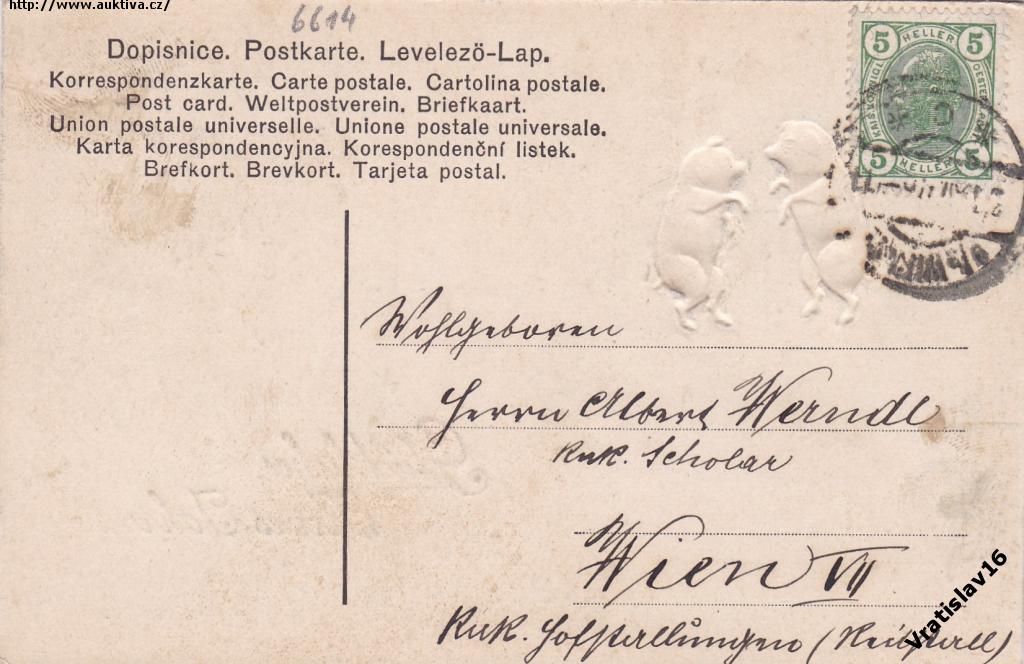 http://www.auktiva.cz/
6614
Dopisnice. Postkarte. Levelező-Lap.
Korrespondenzkarte. Carte postale. Cartolina postale.
Post card. Weltpostverein. Briefkaart.
Union postale universelle. Unione postale universale.
Karta korespondencyjna. Korespondenční listek.
Brefkort. Brevkort. Tarjeta postal.
5 HELLER 5
5 HELLER 5
Wohlgeboren
Herrn Albert Werndl
k.u.k. Scholar
Wien VII
k.u.k. Hofstallungen (Reitstall)
Vratislav16